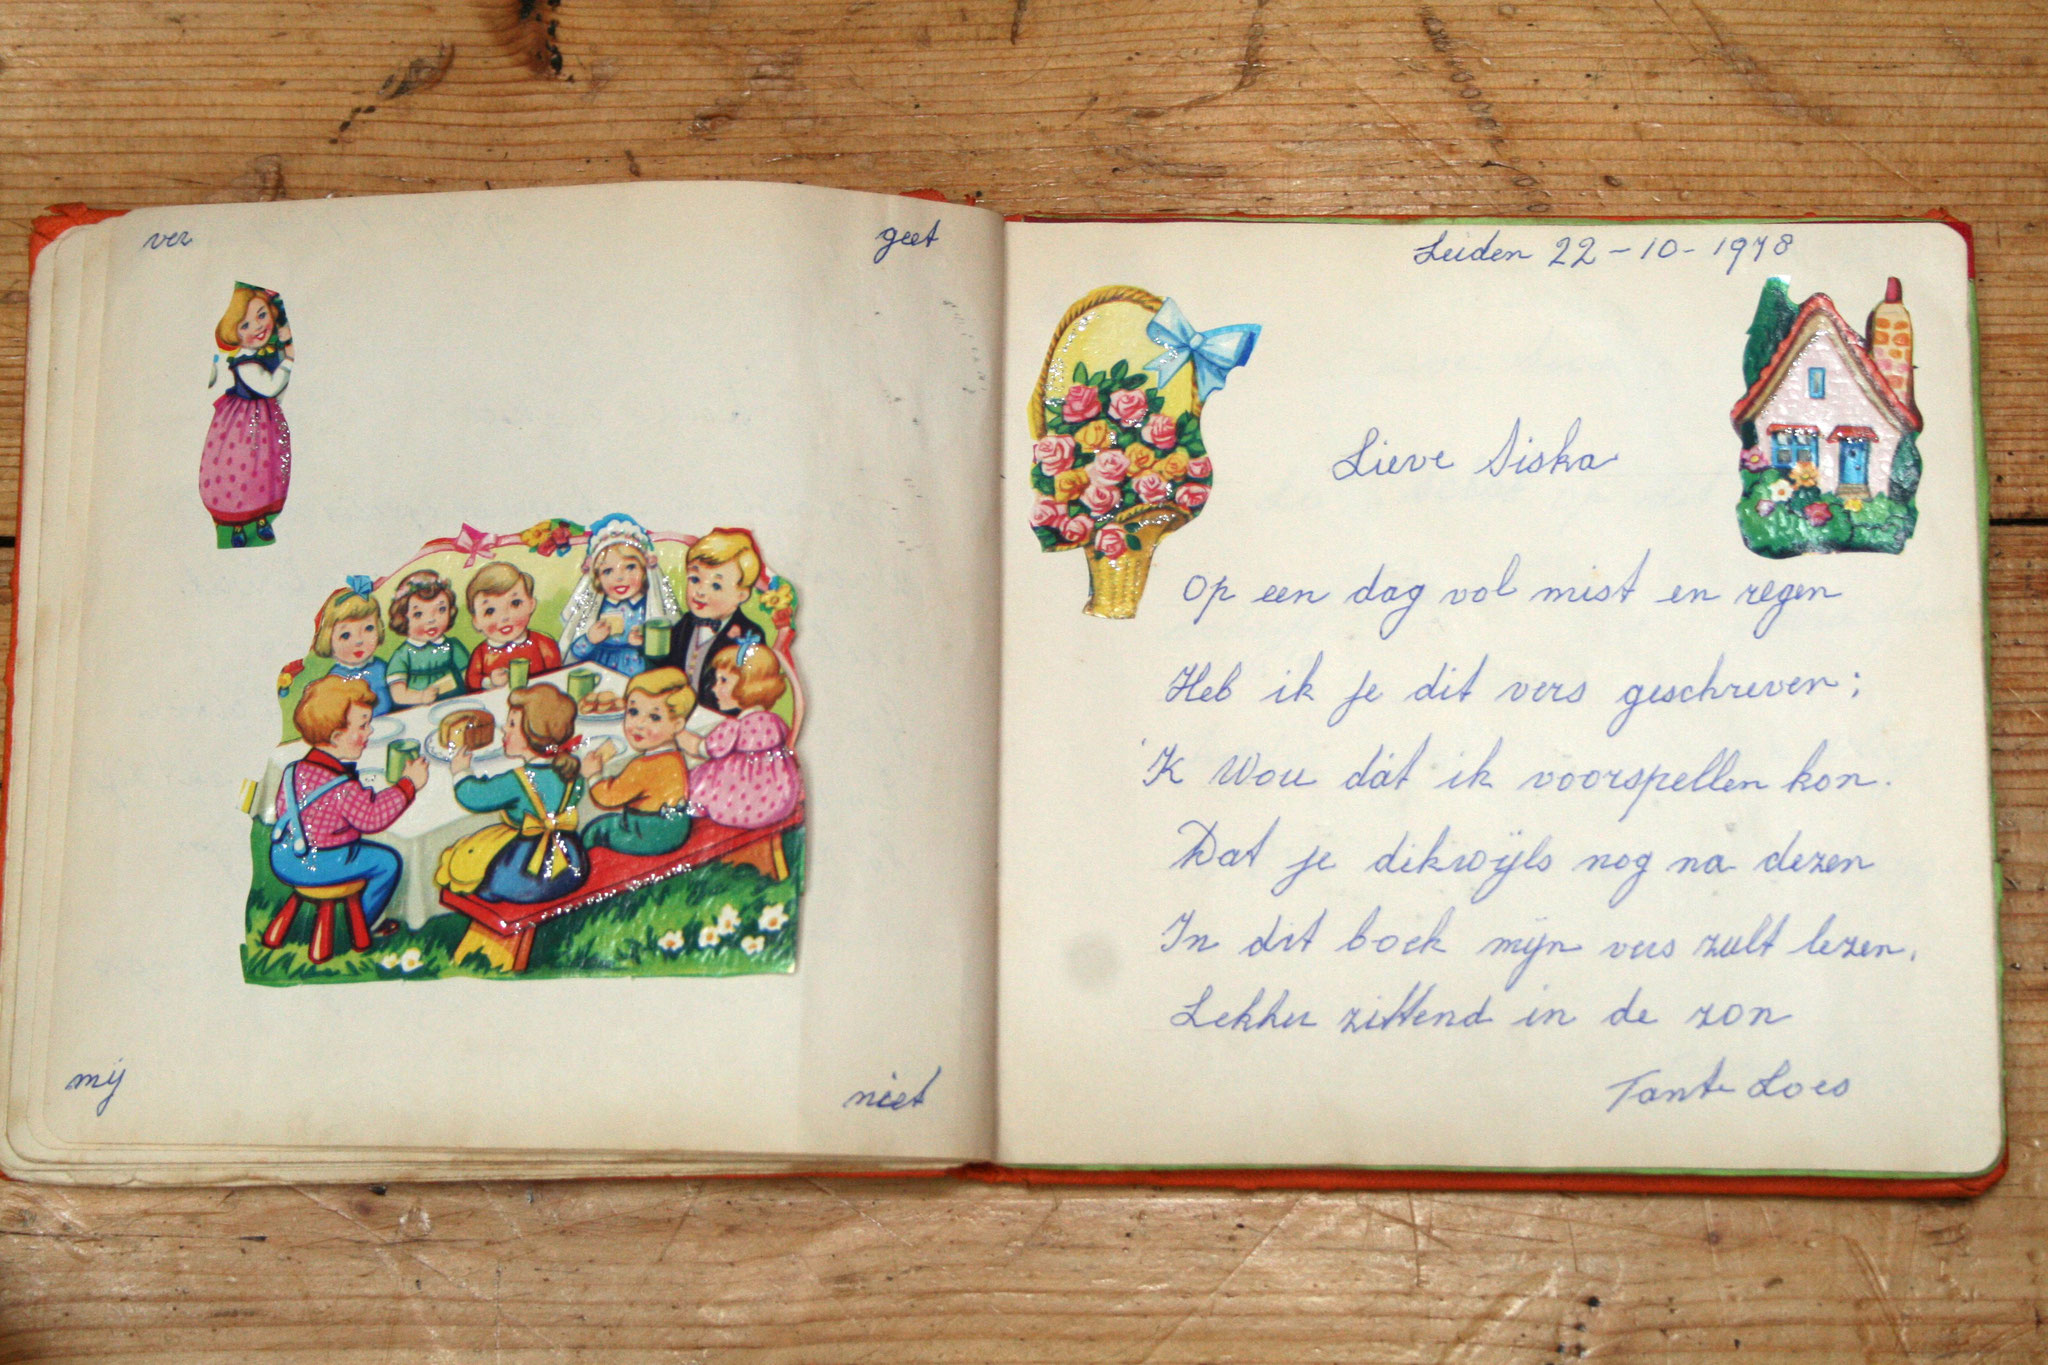 ver geet
mij niet
Leiden 22-10-1978
Lieve Siska
Op een dag vol mist en regen
Heb ik je dit vers geschreven;
'K Wou dát ik voorspellen kon.
Dat je dikwijls nog na dezen
In dit boek mijn vers zult lezen,
Lekker zittend in de zon
Tante Loes